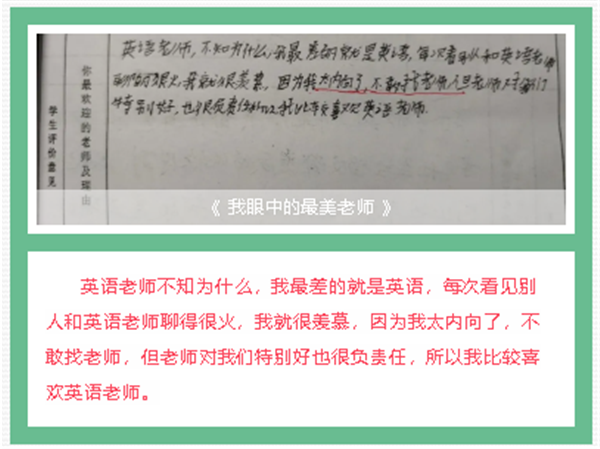 英语老师，不知为什么，我最差的就是英语，每次看见别人和英语老师
聊得很火，我就很羡慕，因为我太内向了，不敢找老师，但老师对我们
特别好，也很负责任所以我比较喜欢英语老师.
你最欢迎的老师及理由
学生评价意见
《 我眼中的最美老师 》
英语老师不知为什么，我最差的就是英语，每次看见别
人和英语老师聊得很火，我就很羡慕，因为我太内向了，不
敢找老师，但老师对我们特别好也很负责任，所以我比较喜
欢英语老师。